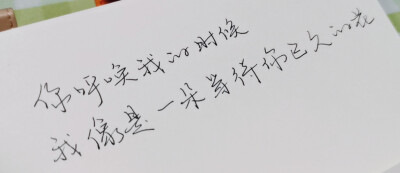 你呼唤我的时候
我像是一朵等待你已久的花